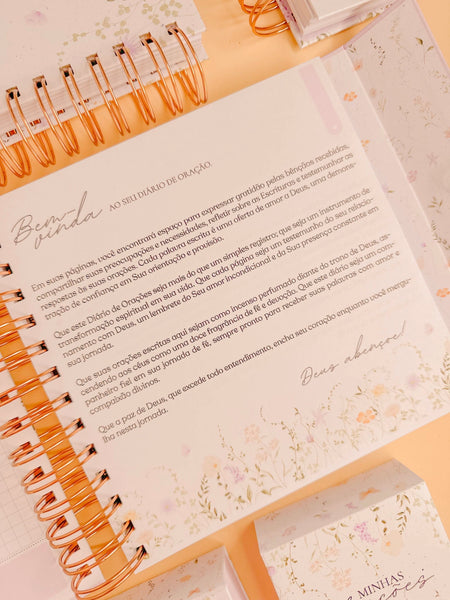 Bem-
vinda AO SEU DIÁRIO DE ORAÇÃO.
Em suas páginas, você encontrará espaço para expressar gratidão pelas bênçãos recebidas,
compartilhar suas preocupações e necessidades, refletir sobre as Escrituras e testemunhar as
respostas às suas orações. Cada palavra escrita é uma oferta de amor a Deus, uma demons-
tração de confiança em Sua orientação e provisão.
Que este Diário de Orações seja mais do que um simples registro; que seja um instrumento de
transformação espiritual em sua vida. Que cada página seja um testemunho do seu relacio-
namento com Deus, um lembrete do Seu amor incondicional e da Sua presença constante em
sua jornada.
Que suas orações escritas aqui sejam como incenso perfumado diante do trono de Deus, as-
cendendo aos céus como uma doce fragrância de fé e devoção. Que este diário seja um com-
panheiro fiel em sua jornada de fé, sempre pronto para receber suas palavras com amor e
compaixão divinos.
Que a paz de Deus, que excede todo entendimento, encha seu coração enquanto você mergu-
lha nesta jornada.
Deus abençoe!
MINHAS